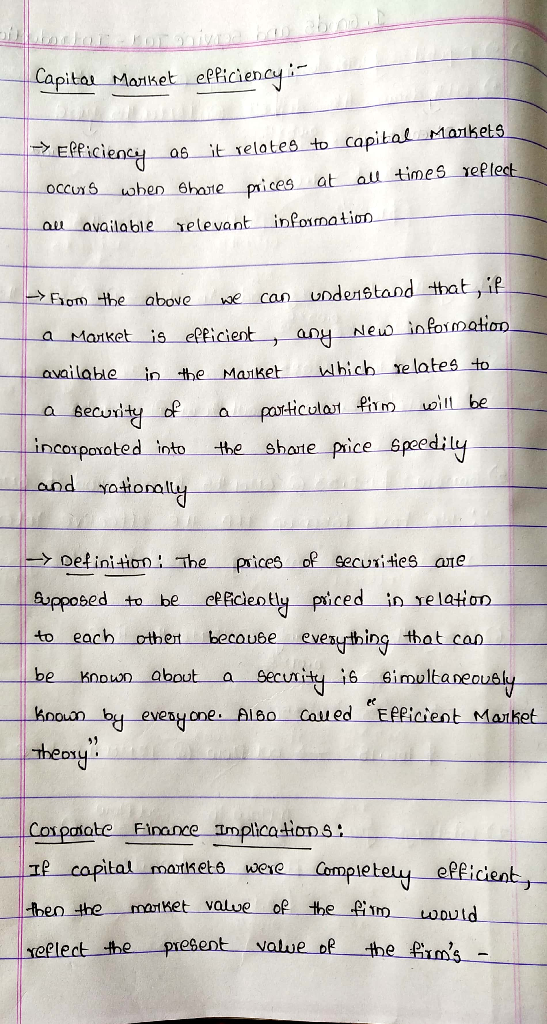 Capital Market efficiency :-
→ Efficiency as it relates to capital Markets
occurs when share prices at all times reflect
all available relevant information
→ From the above we can understand that, if
a Market is efficient, any New information
available in the Market which relates to
a security of a particular firm will be
incorporated into the share price speedily
and rationally
→ Definition: The prices of securities are
supposed to be efficiently priced in relation
to each other because everything that can
be known about a security is simultaneously
known by everyone. Also called "Efficient Market
Theory".
Corporate Finance Implications:
If capital markets were completely efficient,
then the market value of the firm would
reflect the present value of the firm's -